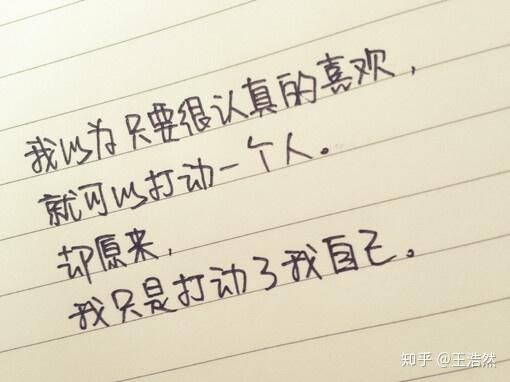 我以为只要很认真的喜欢，
就可以打动一个人。
却原来，
我只是打动了我自己。
知乎 @王浩然